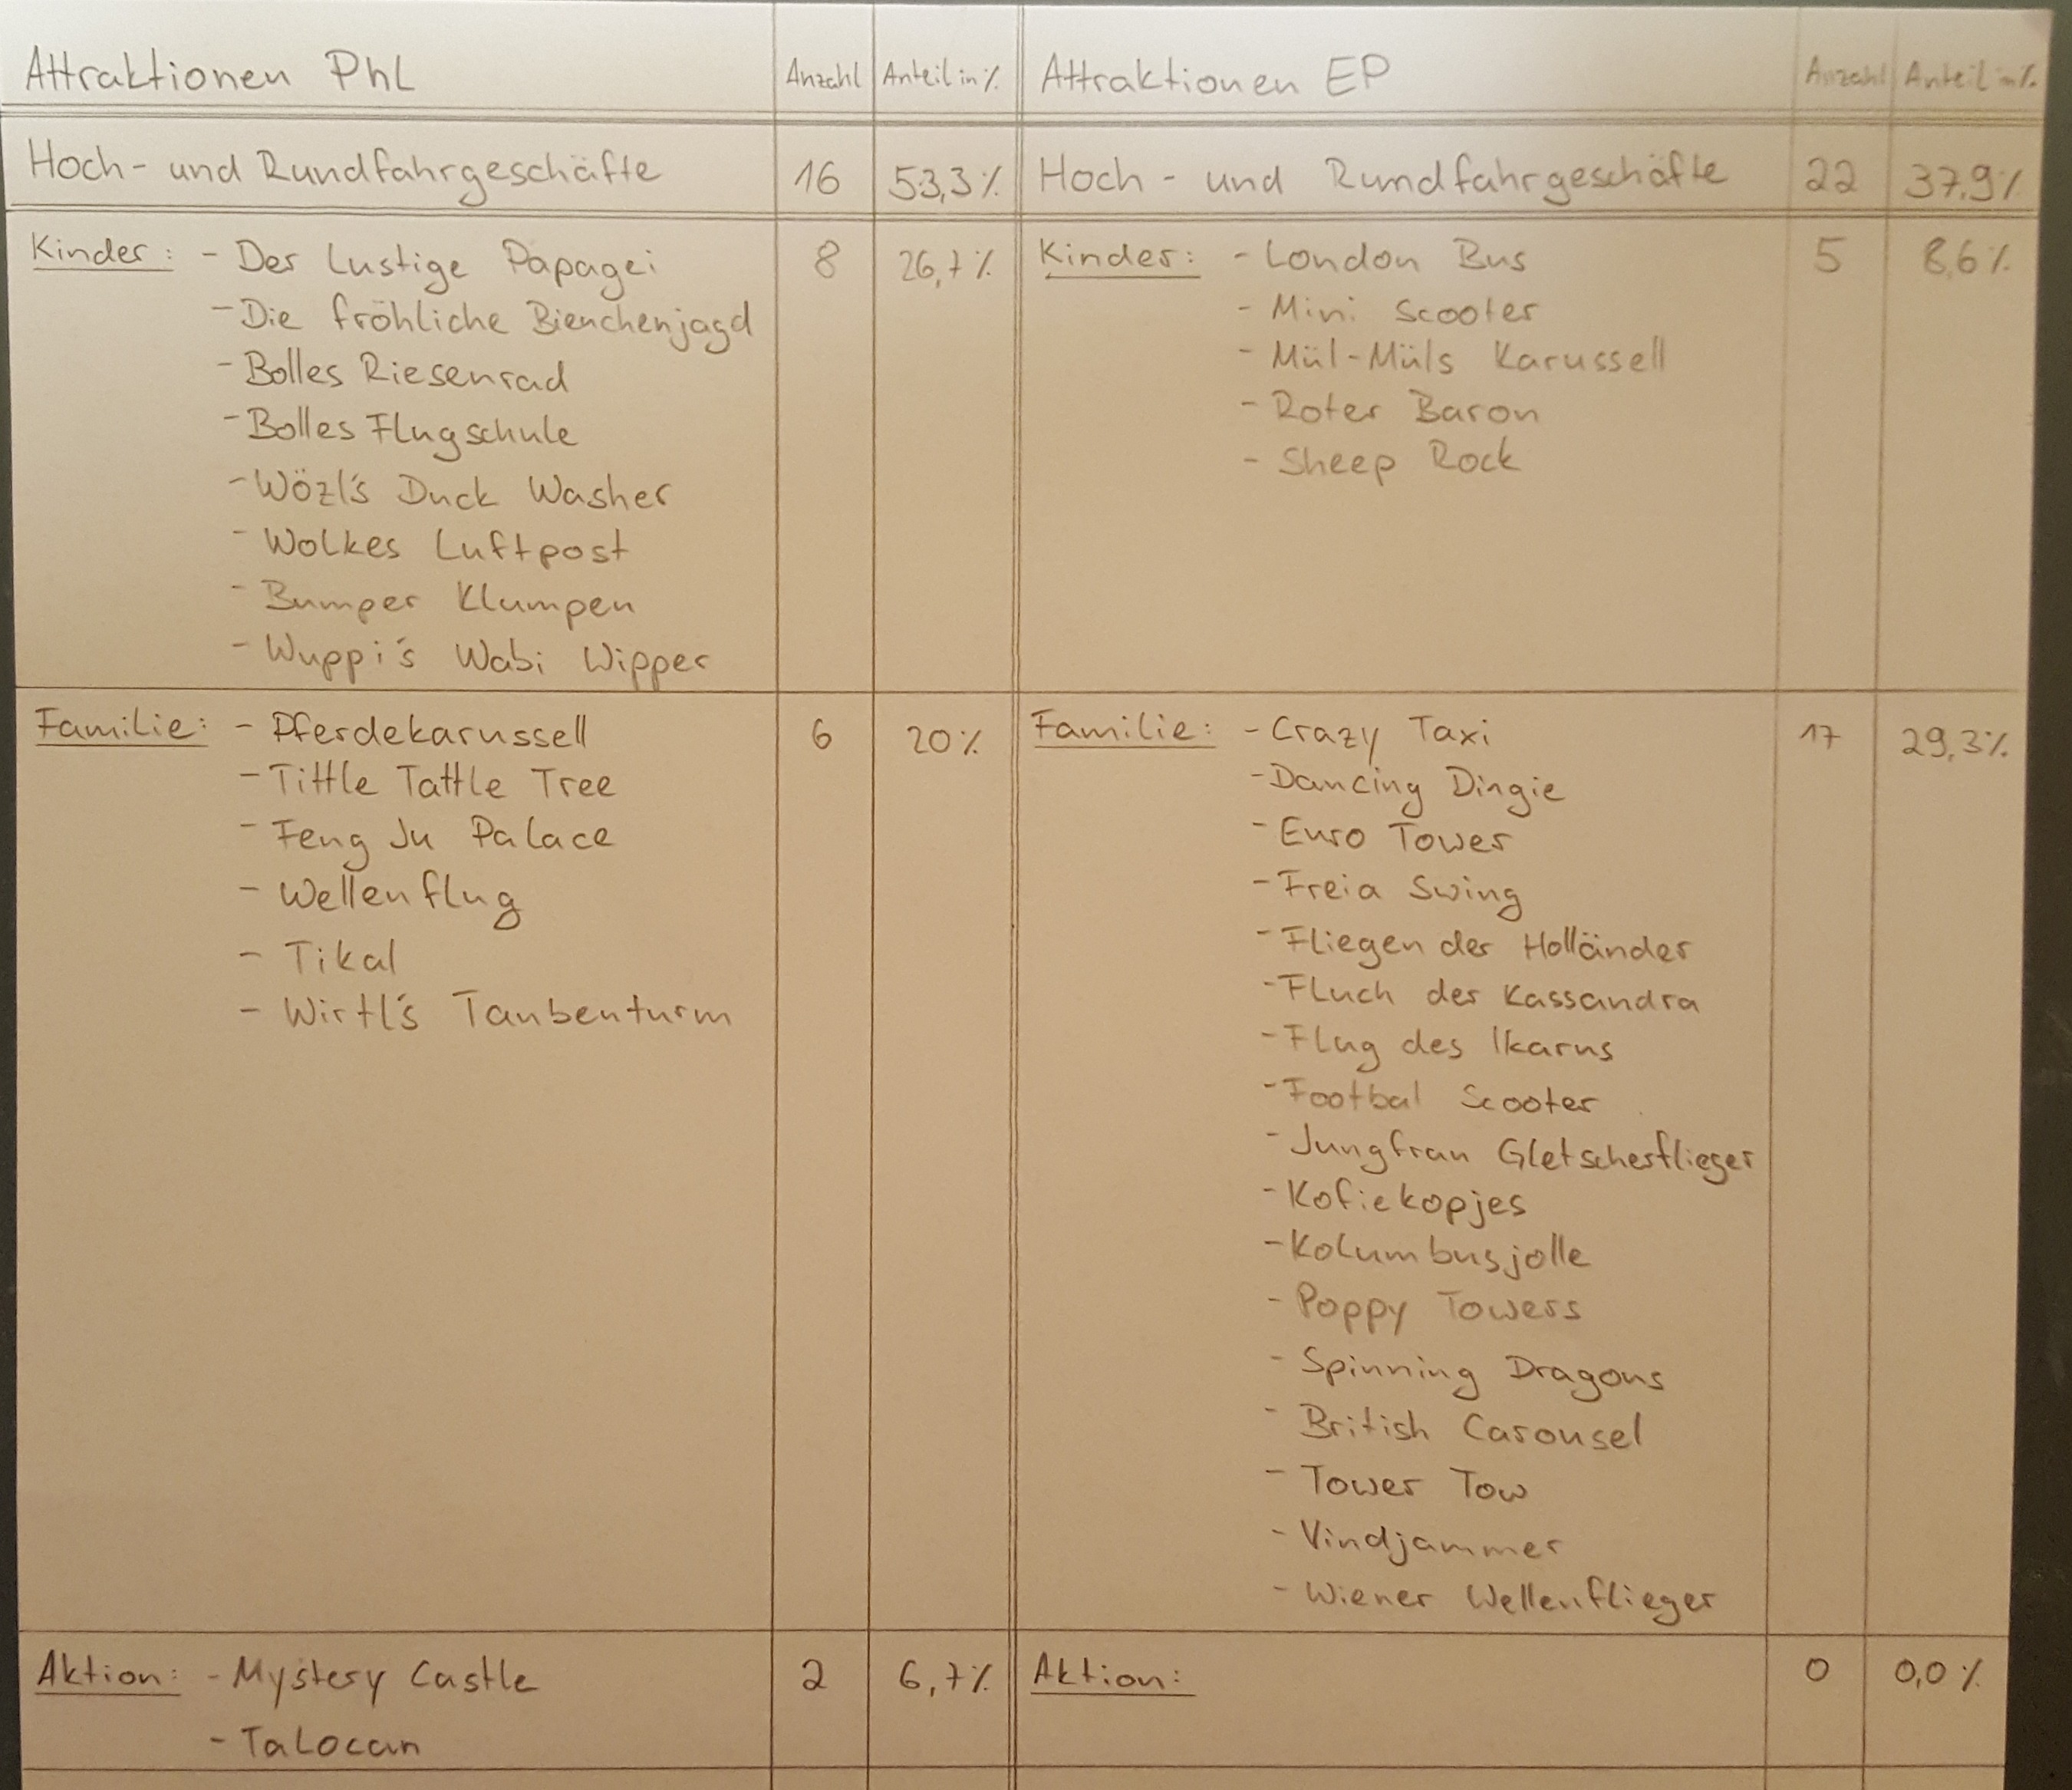 Attraktionen PhL Anzahl Anteil in % Attraktionen EP Anzahl Anteil in %
Hoch- und Rundfahrgeschäfte 16 53,3% Hoch- und Rundfahrgeschäfte 22 37,9%
Kinder: - Der Lustige Papagei 8 26,7% Kinder: - London Bus 5 8,6%
- Die fröhliche Bienchenjagd - Mini Scooter
- Bolles Riesenrad - Mül-Müls Karussell
- Bolles Flugschule - Roter Baron
- Wözl's Duck Washer - Sheep Rock
- Wolkes Luftpost
- Bumper Klumpen
- Wuppi's Wabi Wipper
Familie: - Pferdekarussell 6 20% Familie: - Crazy Taxi 17 29,3%
- Tittle Tattle Tree - Dancing Dingie
- Feng Ju Palace - Euro Tower
- Wellenflug - Freia Swing
- Tikal - Fliegen der Holländer
- Wirtl's Taubenturm - Fluch der Kassandra
- Flug des Ikarus
- Footbal Scooter
- Jungfrau Gletscherflieger
- Kofiekopjes
- Kolumbusjolle
- Poppy Towers
- Spinning Dragons
- British Carousel
- Tower Tow
- Vindjammer
- Wiener Wellenflieger
Aktion: - Mystery Castle 2 6,7% Aktion: 0 0,0%
- Talocan